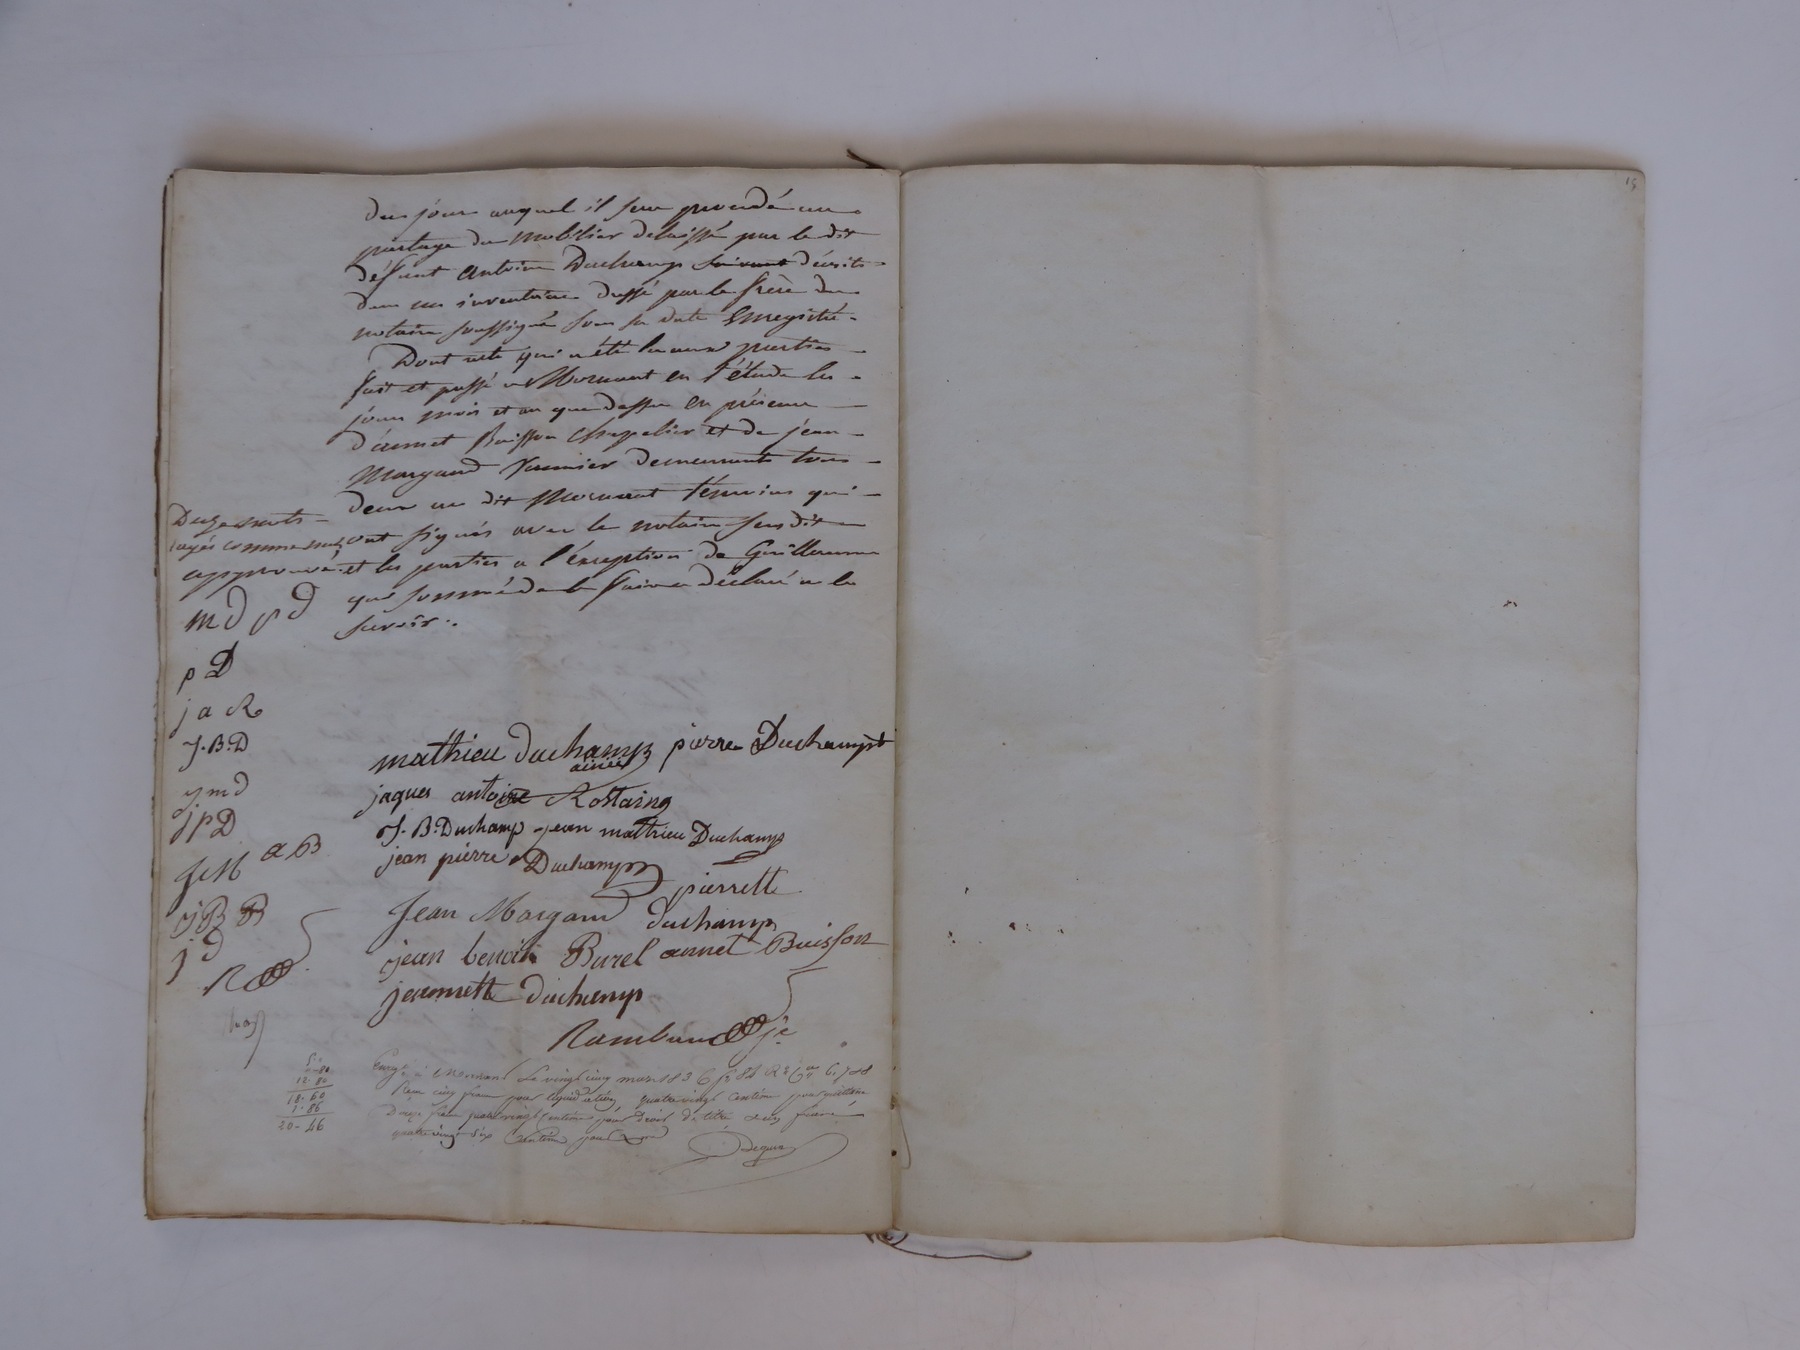 des jour auquel il sera procédé au
partage du mobilier delaissé par le dit
défunt Antoine Duchamp suivant décrits
dans un inventaire dressé par le frère du
notaire soussigné sous sa date Enregistré.
Dont acte qui a été lu aux parties
fait et passé a Mornant en l'étude les
jour mois et an que dessus en présence
d'annet Buisson Chapelier et de jean
Morgand demeurants tous
deux au dit Mornant témoins qui
ont signés avec le notaire susdit
et les parties a l'éxception de Guillaume
qui sommé de le faire a déclaré ne le
savoir..
Duze mots
rayés comme nuls
approuvé
m D p D
p D
j a R
J.B.D
j m d
j P D
J M a B
j B B
j d
R
mathieu duchamp ainé pierre Duchampt
jaques antoine Rostaing
J. B. Duchamp jean mathieu Duchamp
jean pierre Duchamp
pierrette
Jean Morgand duchamp
jean benoit Burel annet Buisson
jeannette duchamp
Rambaud je
5.-
-80
12.80
18.60
1.86
20-46
Enregé à Mornant Le vingt cinq mars 1836 fo 84 Ro 6. 7 & 8
Reçu cinq francs pour liquidation quatre vingt centimes pour
Douze francs quatre vingt centimes pour droit de titre un franc
quatre vingt six Centimes pour
15